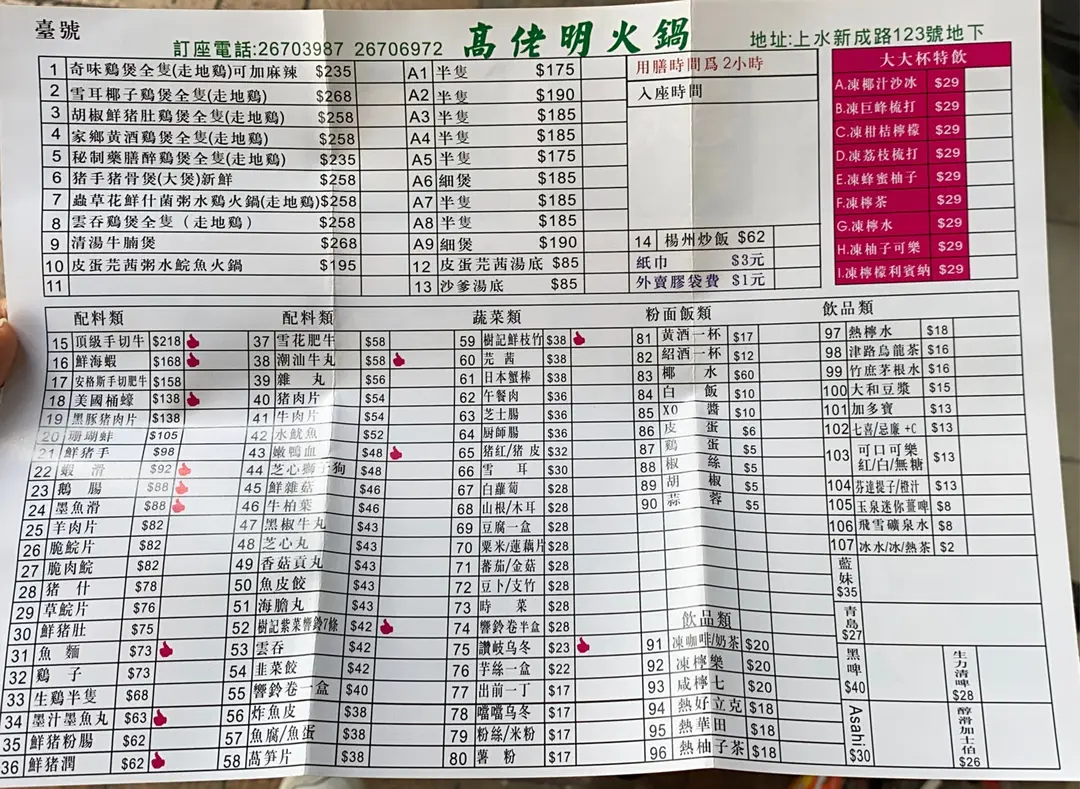 臺號
訂座電話:26703987 26706972
高佬明火鍋
地址:上水新成路123號地下
1 奇味鷄煲全隻(走地鷄)可加麻辣 $235 A1 半隻 $175
2 雪耳椰子鷄煲全隻(走地鷄) $268 A2 半隻 $190
3 胡椒鮮猪肚鷄煲全隻(走地鷄) $258 A3 半隻 $185
4 家鄉黄酒鷄煲全隻(走地鷄) $258 A4 半隻 $185
5 秘制藥膳醉鷄煲全隻(走地鷄) $235 A5 半隻 $175
6 猪手猪骨煲(大煲)新鮮 $258 A6 細煲 $185
7 蟲草花鮮什菌粥水鷄火鍋(走地鷄) $258 A7 半隻 $185
8 雲吞鷄煲全隻（走地鷄） $258 A8 半隻 $185
9 清湯牛腩煲 $268 A9 細煲 $190
10 皮蛋芫茜粥水鯇魚火鍋 $195 12 皮蛋芫茜湯底 $85
11 13 沙爹湯底 $85
用膳時間爲2小時
入座時間
14 楊州炒飯 $62
紙巾 $3元
外賣膠袋費 $1元
大大杯特飲
A.凍椰汁沙冰 $29
B.凍巨峰梳打 $29
C.凍柑桔檸檬 $29
D.凍荔枝梳打 $29
E.凍蜂蜜柚子 $29
F.凍檸茶 $29
G.凍檸水 $29
H.凍柚子可樂 $29
I.凍檸檬利賓納 $29
配料類
15 頂級手切牛 $218
16 鮮海蝦 $168
17 安格斯手切肥牛 $158
18 美國桶蠔 $138
19 黑豚猪肉片 $138
20 珊瑚蚌 $105
21 鮮猪手 $98
22 蝦滑 $92
23 鵝腸 $88
24 墨魚滑 $88
25 羊肉片 $82
26 脆鯇片 $82
27 脆肉鯇 $82
28 猪什 $78
29 草鯇片 $76
30 鮮猪肚 $75
31 魚麵 $73
32 鷄子 $73
33 生鷄半隻 $68
34 墨汁墨魚丸 $63
35 鮮猪粉腸 $62
36 鮮猪潤 $62
配料類
37 雪花肥牛 $58
38 潮汕牛丸 $58
39 雜丸 $56
40 猪肉片 $54
41 牛肉片 $54
42 水魷魚 $52
43 嫩鴨血 $48
44 芝心獅子狗 $48
45 鮮雜菇 $46
46 牛柏葉 $46
47 黑椒牛丸 $43
48 芝心丸 $43
49 香菇貢丸 $43
50 魚皮餃 $43
51 海膽丸 $43
52 樹記紫菜響鈴7條 $42
53 雲吞 $42
54 韭菜餃 $42
55 響鈴卷一盒 $40
56 炸魚皮 $38
57 魚腐/魚蛋 $38
58 萵笋片 $38
蔬菜類
59 樹記鮮枝竹 $38
60 芫茜 $38
61 日本蟹棒 $38
62 午餐肉 $36
63 芝士腸 $36
64 厨師腸 $36
65 猪紅/猪皮 $32
66 雪耳 $30
67 白蘿蔔 $28
68 山根/木耳 $28
69 豆腐一盒 $28
70 粟米/蓮藕片 $28
71 蕃茄/金菇 $28
72 豆卜/支竹 $28
73 時菜 $28
74 響鈴卷半盒 $28
75 讚岐烏冬 $23
76 芋絲一盒 $22
77 出前一丁 $17
78 噹噹乌冬 $17
79 粉絲/米粉 $17
80 薯粉 $17
粉面飯類
81 黄酒一杯 $17
82 紹酒一杯 $12
83 椰水 $60
84 白飯 $10
85 XO醬 $10
86 皮蛋 $6
87 鷄蛋 $5
88 椒絲 $5
89 胡椒 $5
90 蒜蓉 $5
飲品類
91 凍咖啡/奶茶 $20
92 凍檸樂 $20
93 咸檸七 $20
94 熱好立克 $18
95 熱華田 $18
96 熱柚子茶 $18
飲品類
97 熱檸水 $18
98 津路烏龍茶 $16
99 竹庶茅根水 $16
100 大和豆漿 $15
101 加多寶 $13
102 七喜/忌廉+C $13
103 可口可樂 紅/白/無糖 $13
104 芬達提子/橙汁 $13
105 玉泉迷你薑啤 $8
106 飛雪礦泉水 $8
107 冰水/冰/熱茶 $2
藍妹 $35
青島 $27
黑啤 $40
生力清啤 $28
Asahi $30
醇滑加士伯 $26